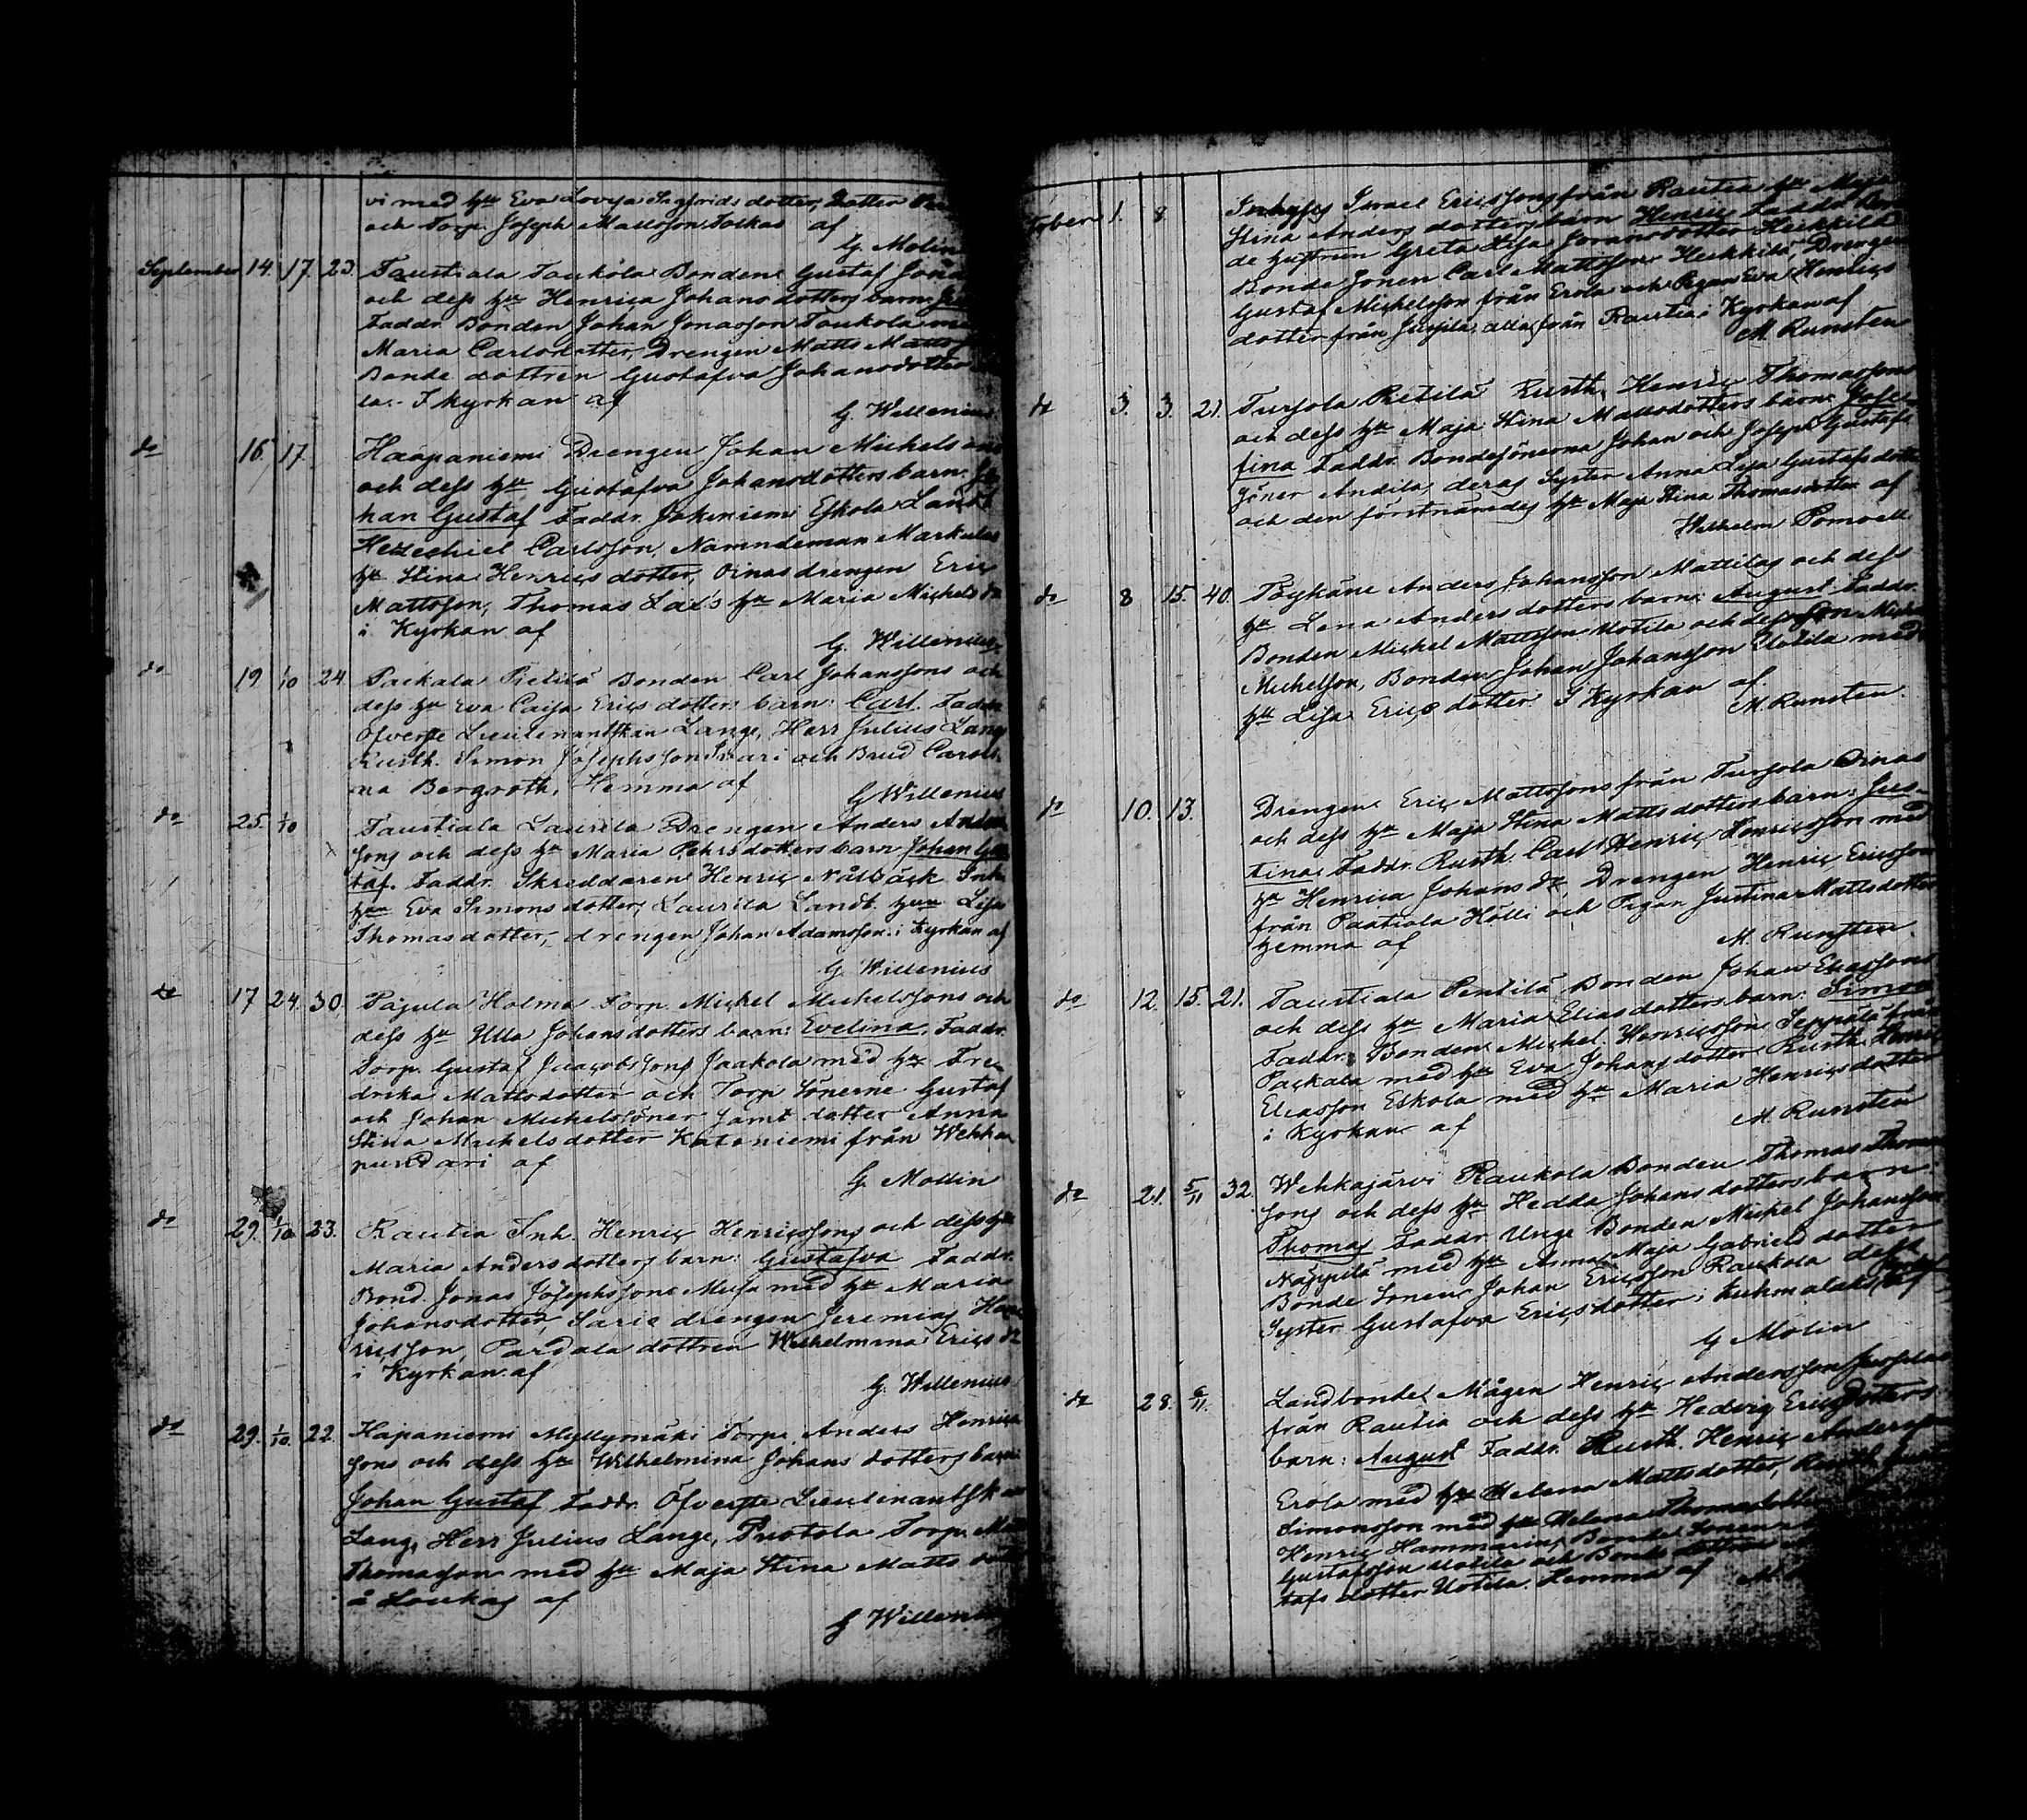 vi med hu Eva Lovisa Sigfridsdotter, Dotter
och Torp. Joseph Mattsson Tolkas af
G. Molin
September 14. 17. 23. Taustiala Taukola Bonden Gustaf
och dess hu Henrica Johansdotters barn:
Faddr. Bonden Johan Jonasson Taukola
Maria Carlsdotter, Drengen Matts
Bonde dottren Gustafva Johansdotter
la. I kyrkan af
G. Willenius
do 16. 17. Haapaniemi Drengen Johan Michelssons
och dess hu Gustafva Johansdotters barn: Jo-
han Gustaf Faddr. Jokiniemi Eskola Landb
Hezechiel Carlsson, Nämndeman Markulas
hu Stina Henricsdotter, Oinas drengen Eric
Mattsson, Thomas Lax's hu Maria Michels dr
i Kyrkan af
G. Willenius
do 19 1/10 24 Packala Pietilä Bonden Carl Johanssons och
dess hu Eva Caisa Ericsdotters barn: Carl. Faddr.
Öfverste Lieutenantskan Lange, Herr Julius Lang
Rusth. Simon Josephsson och Brud Caroli-
na Bergroth, Hemma af
G Willenius
do 25. 1/10 Taustiala Laurila Drengen Anders Anders
sons och dess hu Maria Pehrsdotters barn Johan Gus
taf. Faddr. Skreddaren Henric Nälbäck Inh.
hun Eva Simonsdotter, Laurila Landb. hun Lisa
Thomasdotter, drengen Johan Adamsson. i Kyrkan af
G. Willenius
do 17 24. 30. Pajula Holma Torp. Michel Michelssons och
dess hu Ulla Johansdotters barn: Evelina. Faddr.
Torp. Gustaf Jacobssons Jaakola med hu Fre-
drika Mattsdotter och Torp Sönerne Gustaf
och Johan Michelssöner samt dotter Anna
Stina Michelsdotter Katoniemi från Wehka
pundari af
G. Mollin
do 29. 1/10 23. Rautia Inh. Henric Henricssons och dess hu
Maria Andersdotters barn: Gustafva Faddr.
Bond. Jonas Josephsson med hu Maria
Johansdotter, Saris drengen Jeremias Hen
ricsson, Pardala dottren Wilhelmina Erics dr
i Kyrkan af
G. Willenius
do 29. 1/10. 22. Hapaniemi Myllymäki Torp. Anders Henrics
sons och dess hu Wilhelmina Johansdotters barn:
Johan Gustaf Faddr. Öfverste Lieutenantskan
Lang, Herr Julius Lange, Torp. Matts
Thomasson med hu Maja Stina Matts dotter
å Loukas af
G Willenius
tober 1. 8 Inhyses Israel Ericssons från Rautia hu Maja
Stina Andersdotters barn Henric Faddr.
de hustrun Greta Lisa Joransdotter Heikkilä
Bonde Sonen Carl Mattsson Heikkilä, Drengen
Gustaf Michelsson från Erola och Pigan Eva Henrics
dotter från alla från Rautia i Kyrkan af
M. Runsten
do 3. 3. 21. Tursola Pietilä Rusth. Henric Thomassons
och dess hu Maja Stina Mattsdotters barn: Jose-
fina Faddr. Bondesönerna Johan och Joseph Gustafs
söner Andila, deras Syster Anna Lisa Gustafsdotter
och den förstnämdes hu Maja Stina Thomasdotter af
Wilhelm Pomoell
do 8 15. 40. Anders Johansson Mattilas och dess
hu Lena Andersdotters barn: August Faddr.
Bonden Michel Mattsson Uotila och dess son Michel
Michelson, Bonden Johan Johansson Uotila med
hu Lisa Ericsdotter I Kyrkan af
M. Runsten
do 10. 13. Drengen Eric Mattssons från Tursola Oinas
och dess hu Maja Stina Mattsdotters barn: Jus-
tina: Faddr. Rusth. Carl Henric Henricsson med
hu Henrica Johans dr Drengen Henric Ericsson
från Paatiala Hölli och Pigan Justina Mattsdotter
hemma af
M. Runsten
do 12. 15. 21. Taustiala Pentilä Bonden Johan Eliassons
och dess hu Maria Eliasdotters barn: Simon
Faddr: Bonden Michel Henricsson Seppälä från
Packala med hu Eva Johansdotter Rusth Henric
Eliasson Eskola med hu Maria Henricsdotter
i Kyrkan af
M. Runsten
do 21. 5/11 32. Wehkajärvi Raukola Bonden Thomas Thomas
sons och dess hu Hedda Johansdotters barn
Thomas Faddr. Unge Bonden Michel Johansson
Näppilä med hu Anna Maja Gabrielsdotter
Bonde Sonen Johan Ericsson Raukola dess
Syster Gustafva Ericsdotter i Kuhmalaks af
G Molin
do 28. 6/11. Landbondes Mågen Henric Andersson
från Rautia och dess hu Hedvig Ericsdotters
barn: August Faddr. Rusth. Henric Andersson
Erola med hu Helena Mattsdotter, Rusth
Simonsson med hu Helena Thomasdotter
Henric Hammarin, Bonde Sonen
Gustafsson Uotila och Bonde dottren
tafs dotter Uotila. Hemma af M